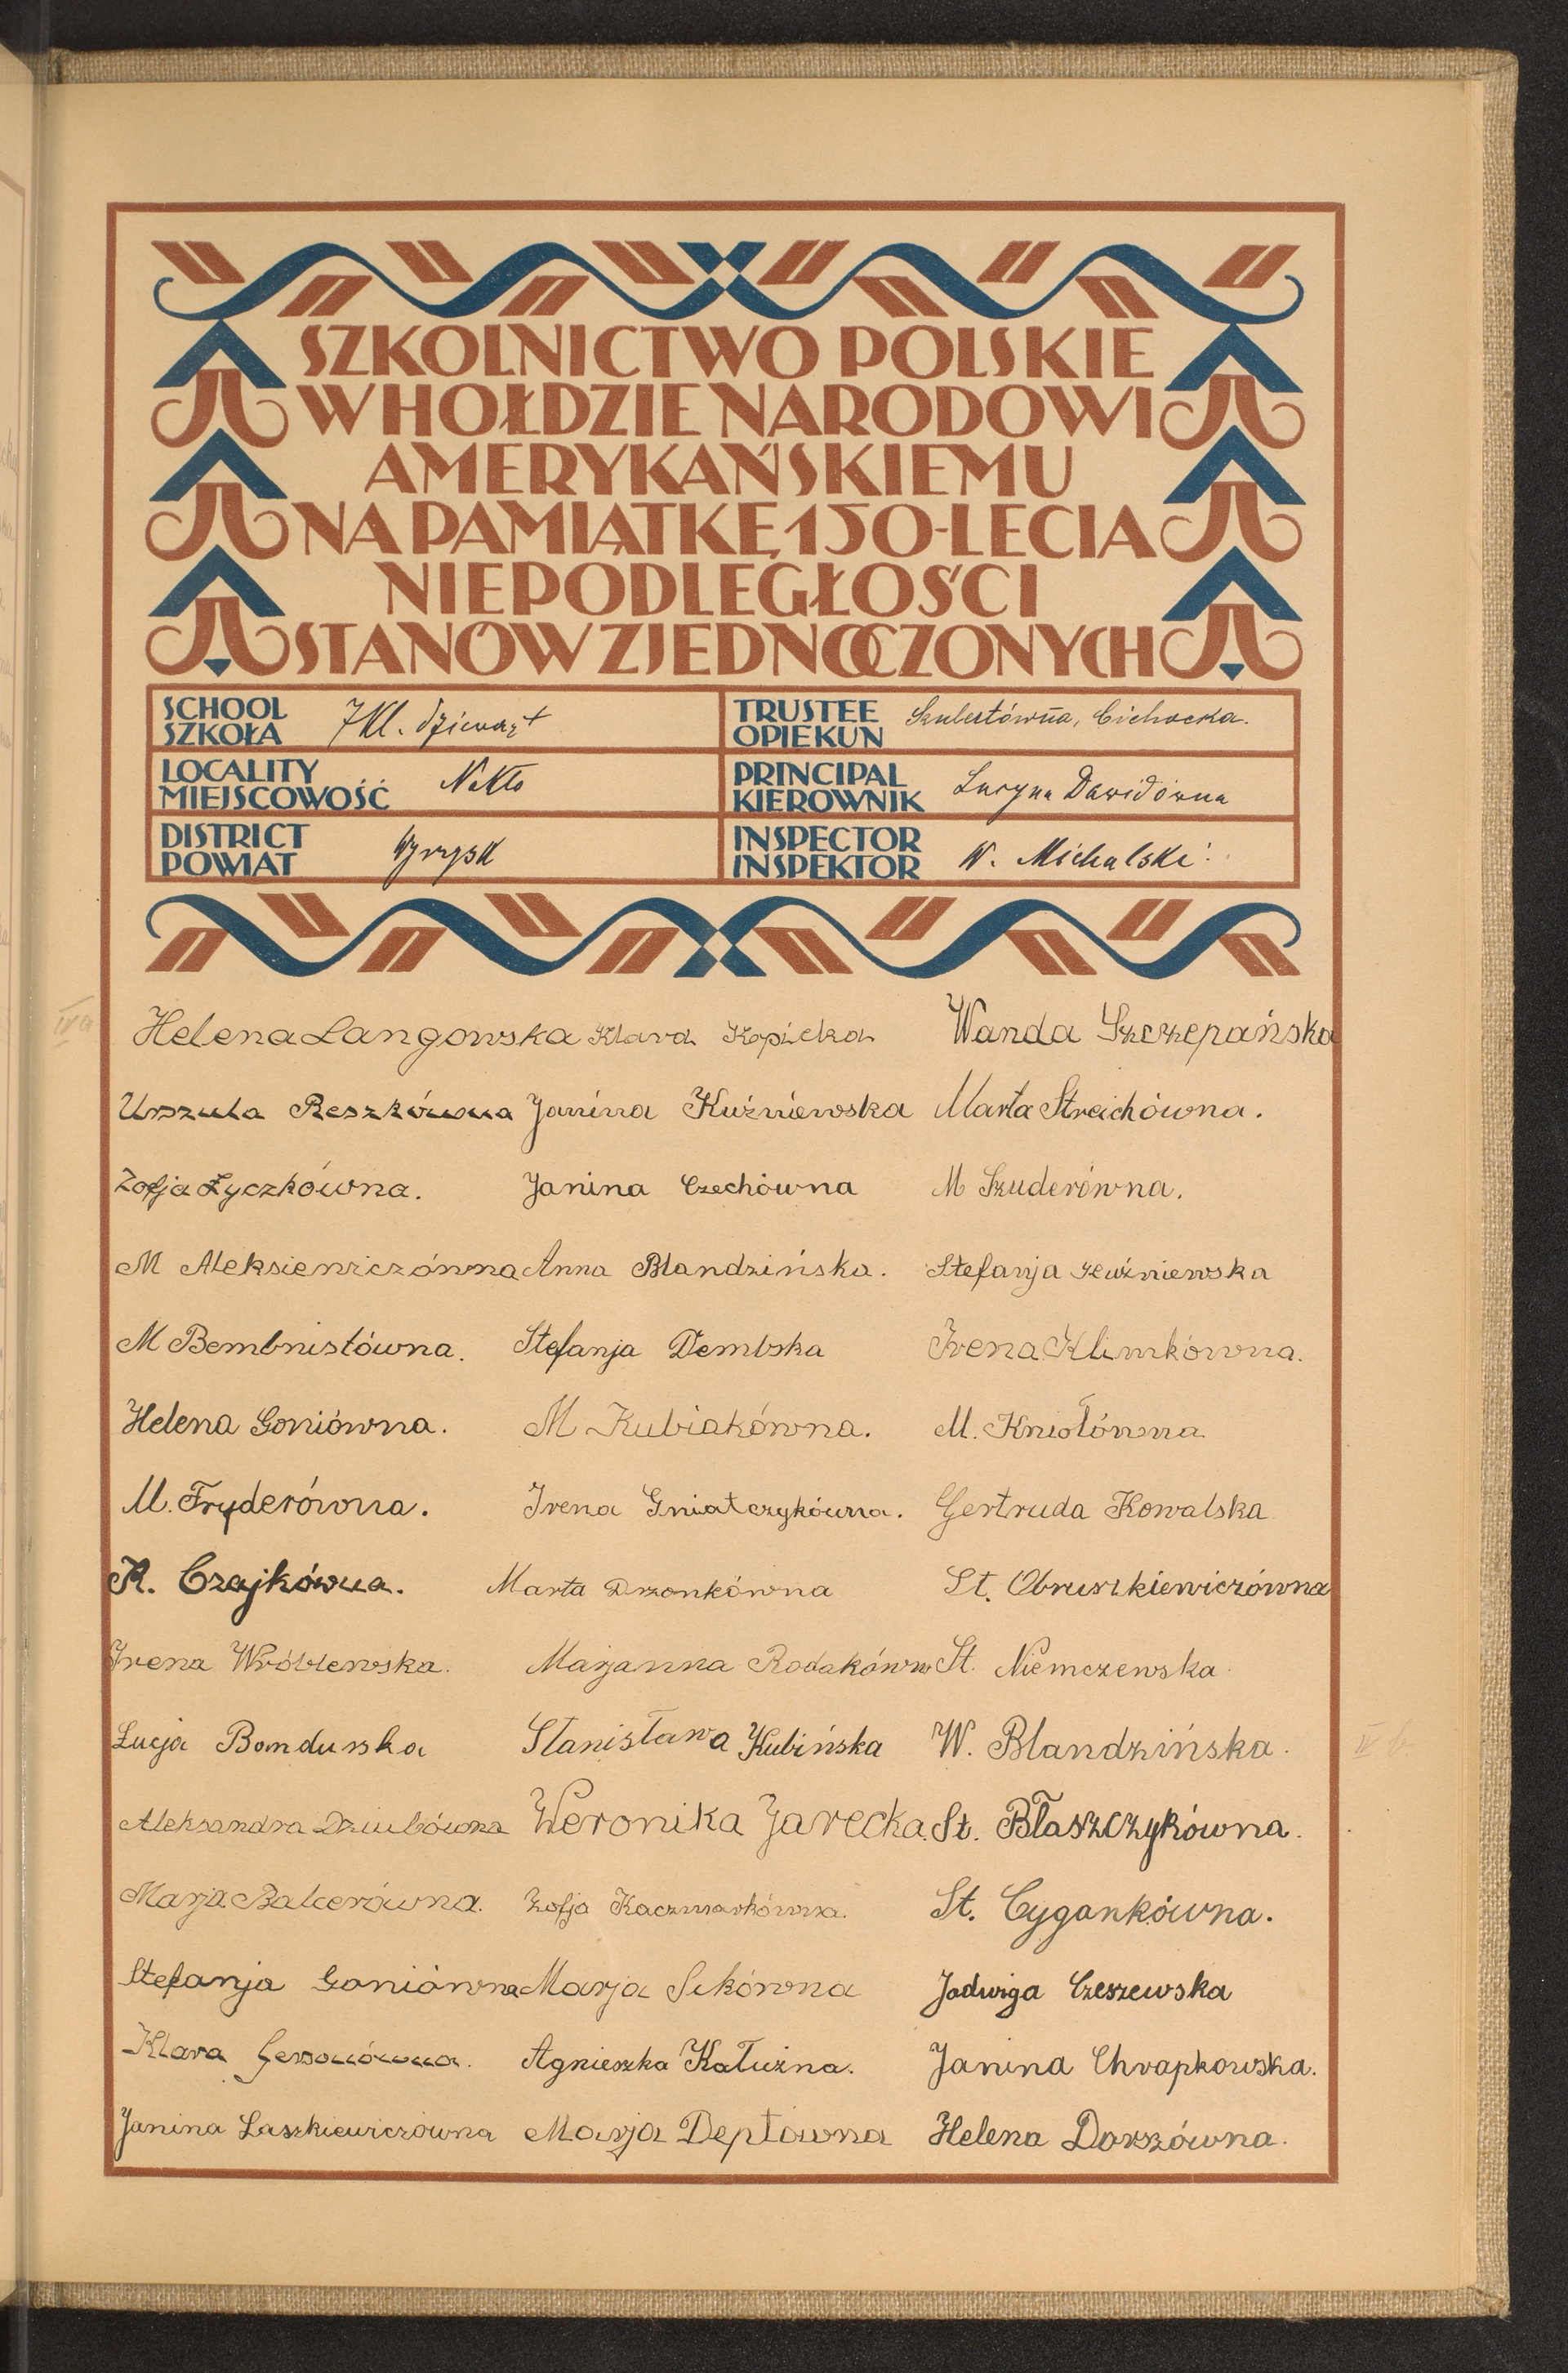 SZKOLNICTWO POLSKIE
W HOŁDZIE NARODOWI
AMERYKAŃSKIEMU
NA PAMIĄTKĘ 150-LECIA
NIEPODLEGŁOŚCI
STANÓW ZJEDNOCZONYCH
SCHOOL
SZKOŁA
7 Kl. dziewcząt
TRUSTEE
OPIEKUN
Szubertówna, Cichocka.
LOCALITY
MIEJSCOWOŚĆ
Nakło
PRINCIPAL
KIEROWNIK
Lucyna Dawidówna
DISTRICT
POWIAT
Wyrzysk
INSPECTOR
INSPEKTOR
W. Michalski
IV a
Helena Langowska Klara Kopicka Wanda Szczepańska
Urszula Reszkówna Janina Kuźniewska Marta Streichówna.
Zofja Łyczkówna. Janina Czechówna M Szuderówna.
M Aleksiewiczówna Anna Blandzińska. Stefanja Kuźniewska
M Bembnistówna. Stefanja Dembska Irena Klimkówna.
Helena Goniówna. M Kubiakówna. M. Kniołówna
M. Fryderówna. Irena Gniatczykówna. Gertruda Kowalska
R. Czajkówna. Marta Drzonkówna St. Obruszkiewiczówna
Irena Wróblewska. Marjanna Rodakówn St. Niemczewska.
Łucja Bandurska Stanisława Kubińska W. Blandzińska.
IV b.
Aleksandra Dziubówna Weronika Jarecka. St. Błaszczykówna.
Marja Balcerówna. Zofja Kaczmarkówna. St. Cygankówna.
Stefanja Goniówna Marja Sikówna Jadwiga Czeszewska
Klara Gersonówna. Agnieszka Kałużna. Janina Chrapkowska.
Janina Laszkiewiczówna Marja Deptówna Helena Dorszówna.